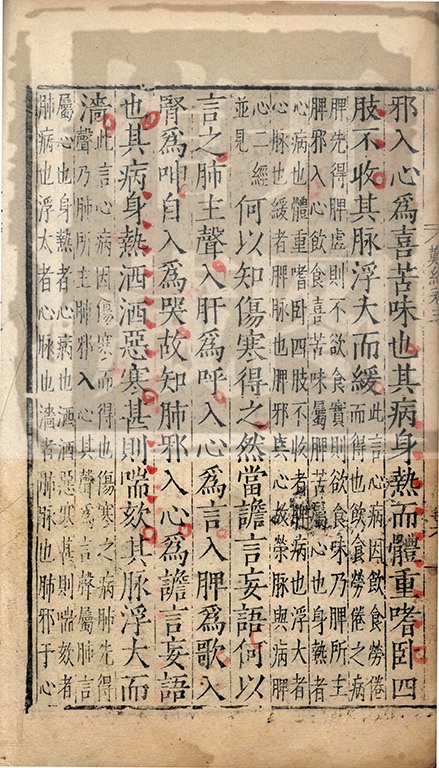 邪入心為喜苦味也其病身熱而體重嗜卧四
肢不收其脉浮大而緩
此言心病因飲食勞倦
而得也飲食勞倦之病
脾先得脾虛則不欲食實則欲食味乃脾所主
脾邪入心飲食喜苦味屬脾苦屬心也身熱者
心病也體重嗜卧四肢不收者脾病也浮大者
心脉也緩者脾脉也脾邪與心故榮脉與病脾
心二經
並見
何以知傷寒得之然當譫言妄語何以
言之肺主聲入肝為呼入心為言入脾為歌入
腎為呻自入為哭故知肺邪入心為譫言妄語
也其病身熱洒洒惡寒甚則喘欬其脉浮大而
濇
此言心病因傷寒而得也傷寒之病肺先得
聲乃肺所主肺邪入心其聲為言聲屬肺言
屬心也身熱者心病也洒洒惡寒甚則喘欬者
肺病也浮大者心脉也濇者肺脉也肺邪于心